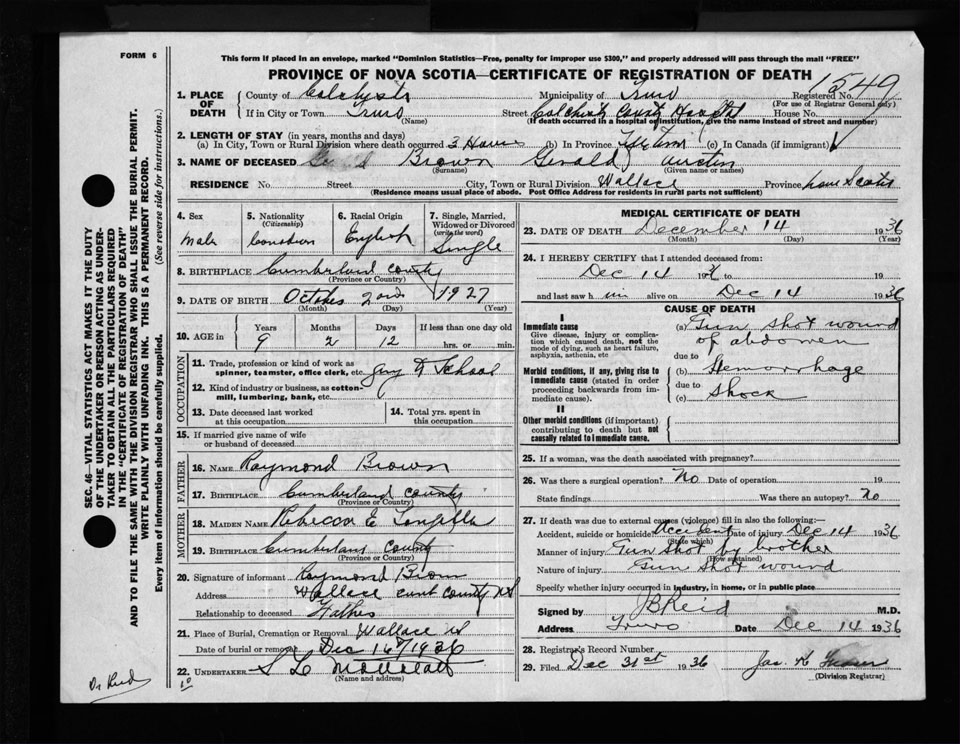 FORM 6
This form if placed in an envelope, marked "Dominion Statistics—Free, penalty for improper use $300," and properly addressed will pass through the mail "FREE"
PROVINCE OF NOVA SCOTIA—CERTIFICATE OF REGISTRATION OF DEATH
1549
1. PLACE OF DEATH County of Colchester Municipality of Truro Registered No.
(For use of Registrar General only)
If in City or Town Truro Street Colchester County Hospital House No.
(Name) (If death occurred in a hospital or institution, give the name instead of street and number)
2. LENGTH OF STAY (in years, months and days)
(a) In City, Town or Rural Division where death occurred 3 Hours (b) In Province Life time (c) In Canada (if immigrant)
3. NAME OF DECEASED Brown Gerald Austin
(Surname) (Given name or names)
RESIDENCE No. Street City, Town or Rural Division Wallace Province Nova Scotia
(Residence means usual place of abode. Post Office Address for residents in rural parts not sufficient)
4. Sex
Male
5. Nationality
(Citizenship)
Canadian
6. Racial Origin
English
7. Single, Married, Widowed or Divorced
(write the word)
Single
8. BIRTHPLACE Cumberland County
(Province or Country)
9. DATE OF BIRTH October 2nd 1927
(Month) (Day) (Year)
10. AGE in Years Months Days If less than one day old
9 2 12 hrs. or min.
OCCUPATION
11. Trade, profession or kind of work as spinner, teamster, office clerk, etc. School
12. Kind of industry or business, as cotton-mill, lumbering, bank, etc.
13. Date deceased last worked at this occupation
14. Total yrs. spent in this occupation
15. If married give name of wife or husband of deceased
FATHER
16. NAME Raymond Brown
17. BIRTHPLACE Cumberland County
(Province or Country)
MOTHER
18. MAIDEN NAME Rebecca E
19. BIRTHPLACE Cumberland County
(Province or Country)
20. Signature of informant Raymond Brown
Address Wallace Cumb County NS
Relationship to deceased Father
21. Place of Burial, Cremation or Removal Wallace NS
Date of burial or removal Dec 16/1936
22. UNDERTAKER
(Name and address)
MEDICAL CERTIFICATE OF DEATH
23. DATE OF DEATH December 14 1936
(Month) (Day) (Year)
24. I HEREBY CERTIFY that I attended deceased from:
Dec 14 19 to 19
and last saw him alive on Dec 14 1936
CAUSE OF DEATH
I
Immediate cause
Give disease, injury or complication which caused death, not the mode of dying, such as heart failure, asphyxia, asthenia, etc
(a) Gun shot wound
of abdomen
due to
Morbid conditions, if any, giving rise to immediate cause (stated in order proceeding backwards from immediate cause).
(b) Hemorrhage
due to
(c) Shock
II
Other morbid conditions (if important) contributing to death but not causally related to immediate cause.
25. If a woman, was the death associated with pregnancy?
26. Was there a surgical operation? No Date of operation 19
State findings Was there an autopsy? No
27. If death was due to external causes (violence) fill in also the following:—
Accident, suicide or homicide Accident Date of injury Dec 14 1936
(State which)
Manner of injury Gun shot by brother
(How sustained)
Nature of injury Gun shot wound
Specify whether injury occurred in industry, in home, or in public place
Signed by J B Reid M.D.
Address Truro Date Dec 14 1936
28. Registrar's Record Number
29. Filed Dec 31st 1936 Jas. K Fraser
(Division Registrar)
SEC. 46—VITAL STATISTICS ACT MAKES IT THE DUTY OF THE UNDERTAKER OR PERSON ACTING AS UNDERTAKER TO OBTAIN ALL THE PARTICULARS REQUIRED IN THE "CERTIFICATE OF REGISTRATION OF DEATH"
AND TO FILE THE SAME WITH THE DIVISION REGISTRAR WHO SHALL ISSUE THE BURIAL PERMIT.
WRITE PLAINLY WITH UNFADING INK. THIS IS A PERMANENT RECORD.
Every item of information should be carefully supplied. (See reverse side for instructions.)
Dr Reid